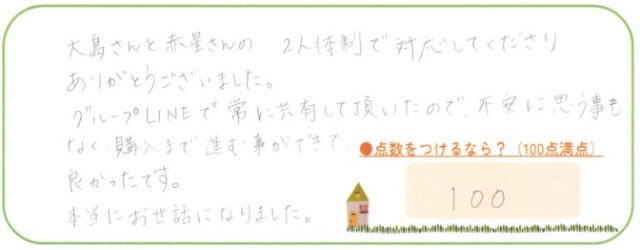 大島さんと赤星さんの 2人体制で対応してくださり
ありがとうございました。
グループLINEで常に共有して頂いたので、不安に思う事も
なく、購入まで進む事ができて、
良かったです。
本当にお世話になりました。
●点数をつけるなら？（100点満点）
100